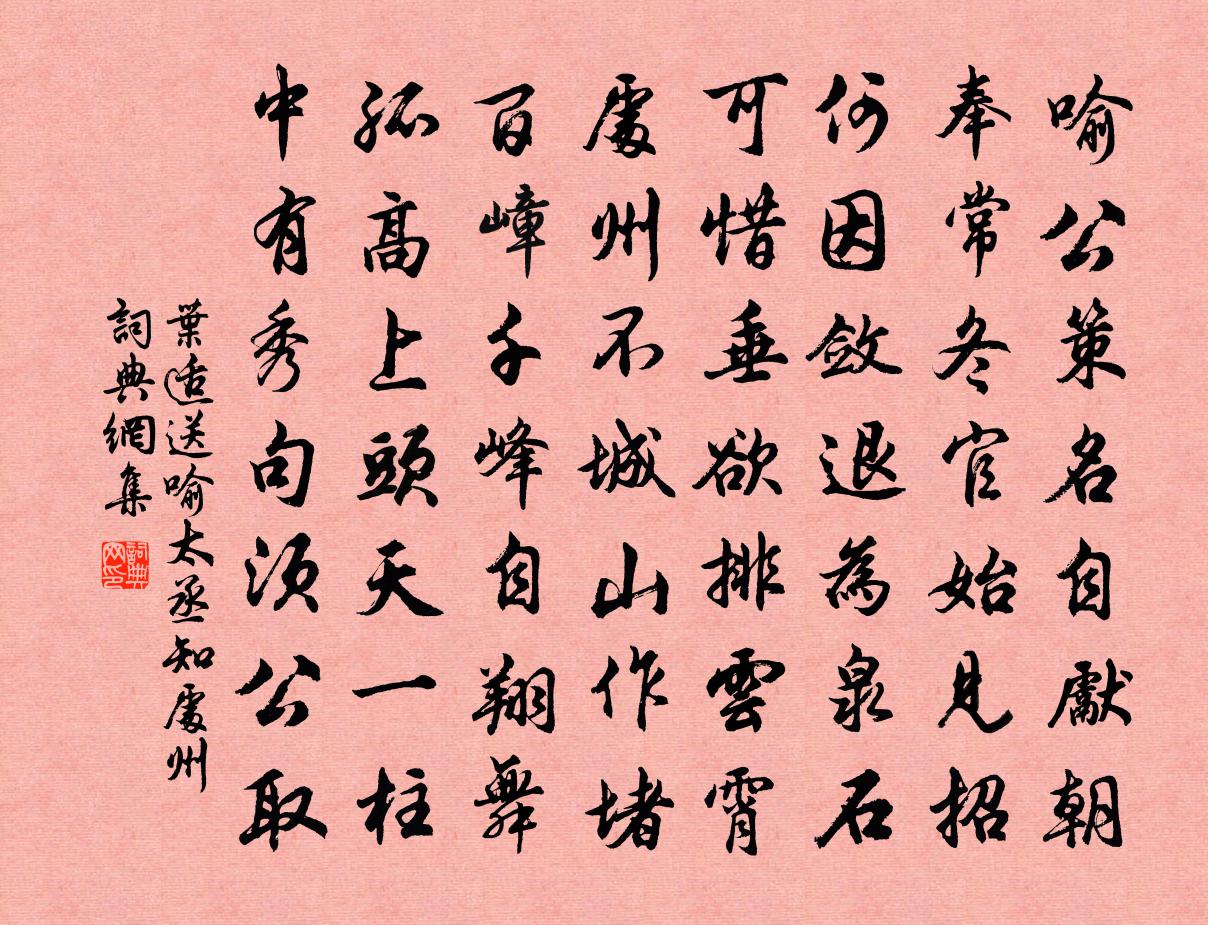 喻公策名自獻朝
奉常冬官始見招
何因斂退為泉石
可惜垂欲排雲霄
處州不城山作堵
百嶂千峰自翔舞
孤高上頭天一柱
中有秀句須公取
葉适送喻太丞知處州
詞典網集
詞典网印